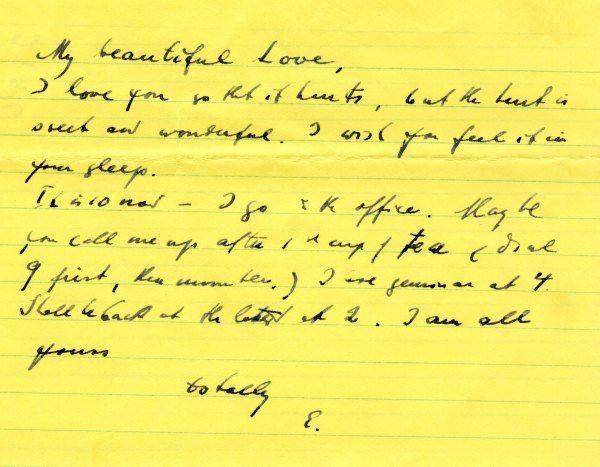 My beautiful Love,
I love you so that it hurts, but the hurt is
sweet and wonderful. I wish you feel it in
your sleep.
It is 10 now – I go to the office. Maybe
you call me up after 1st cup of tea (dial
9 first, then number.) I have seminar at 4.
Shall be back at the latest at
I am all
yours
totally
E.